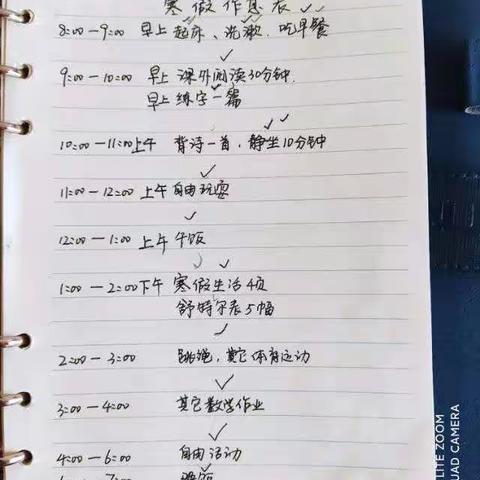 寒假作息表
8:00—9:00 早上 起床、洗漱、吃早餐
9:00—10:00 早上 课外阅读30分钟.
早上 练字一篇
10:00—11:00上午 背诗一首,静坐10分钟
11:00—12:00 上午 自由玩耍
12:00—1:00 上午 午饭
1:00—2:00下午 寒假生活4页
舒特尔表5幅
2:00—3:00 跳绳,其它体育运动
3:00—4:00 其它数学作业
4:00—6:00 自由活动
晚饭
LITE ZOOM
QUAD CAMERA